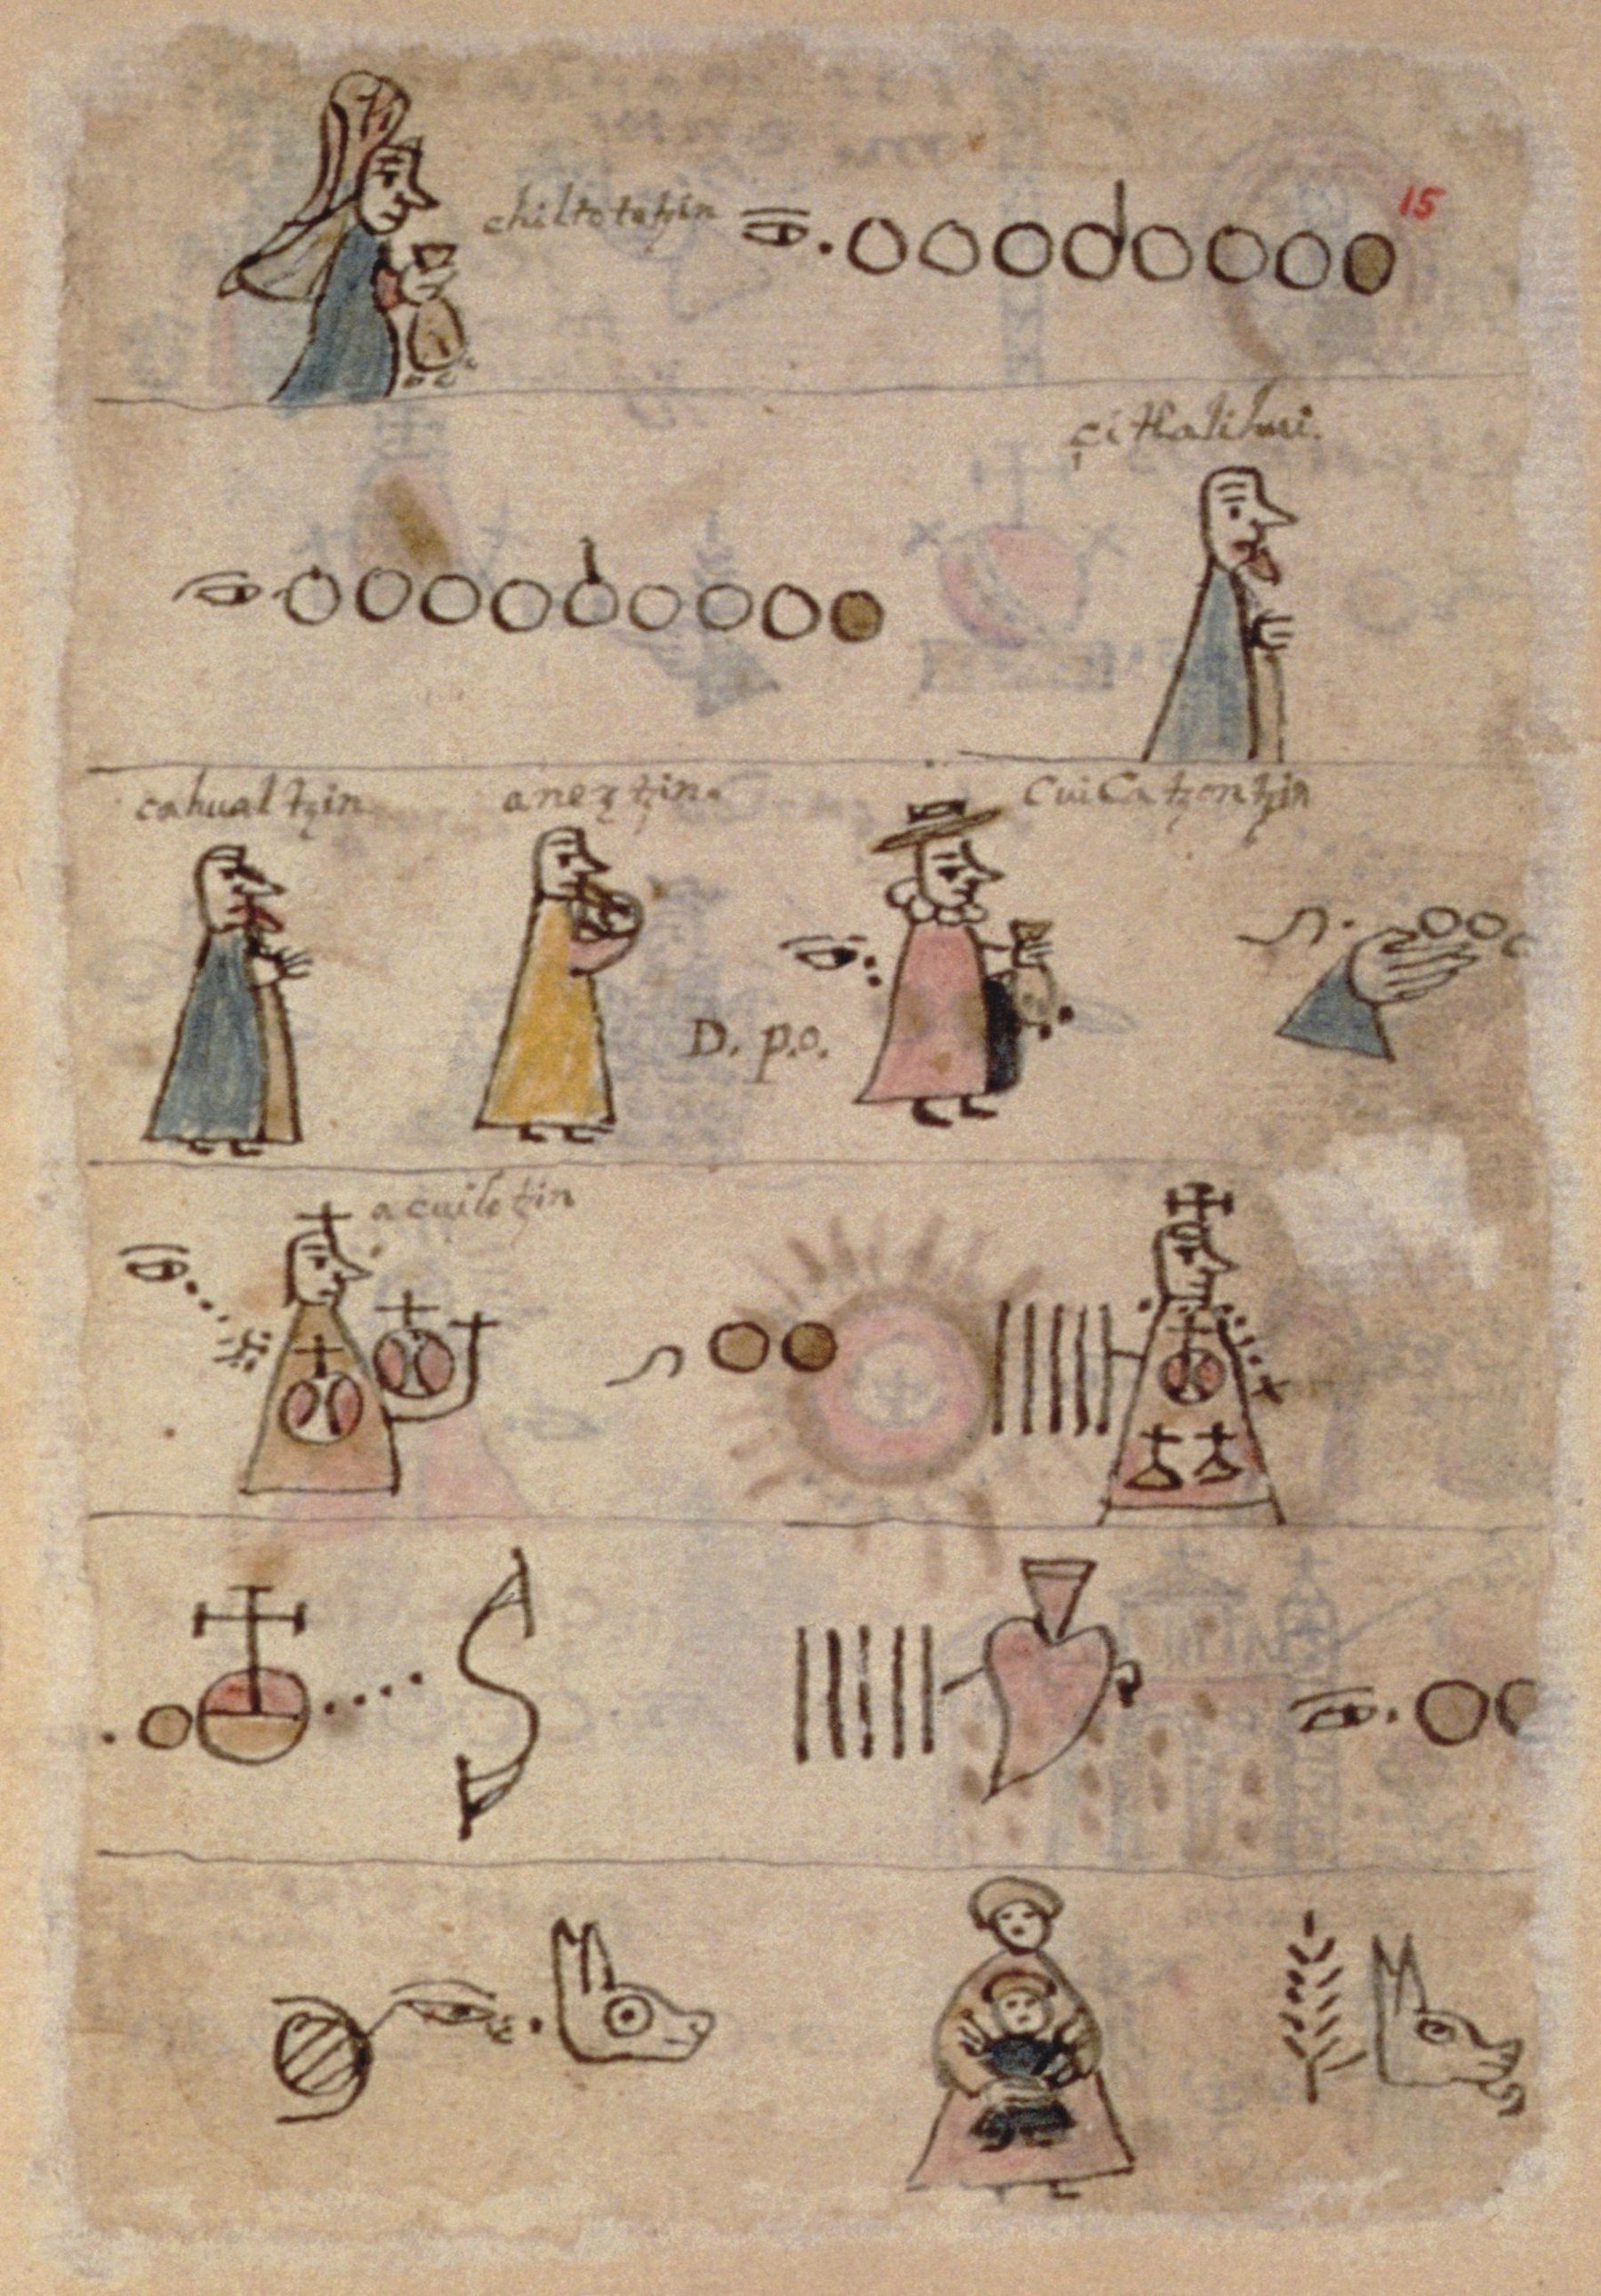 15
chiltototzin
citlalihui.
cahualtzin
aneztzin.
cuicatzontzin
D. p.o.
acuilotzin